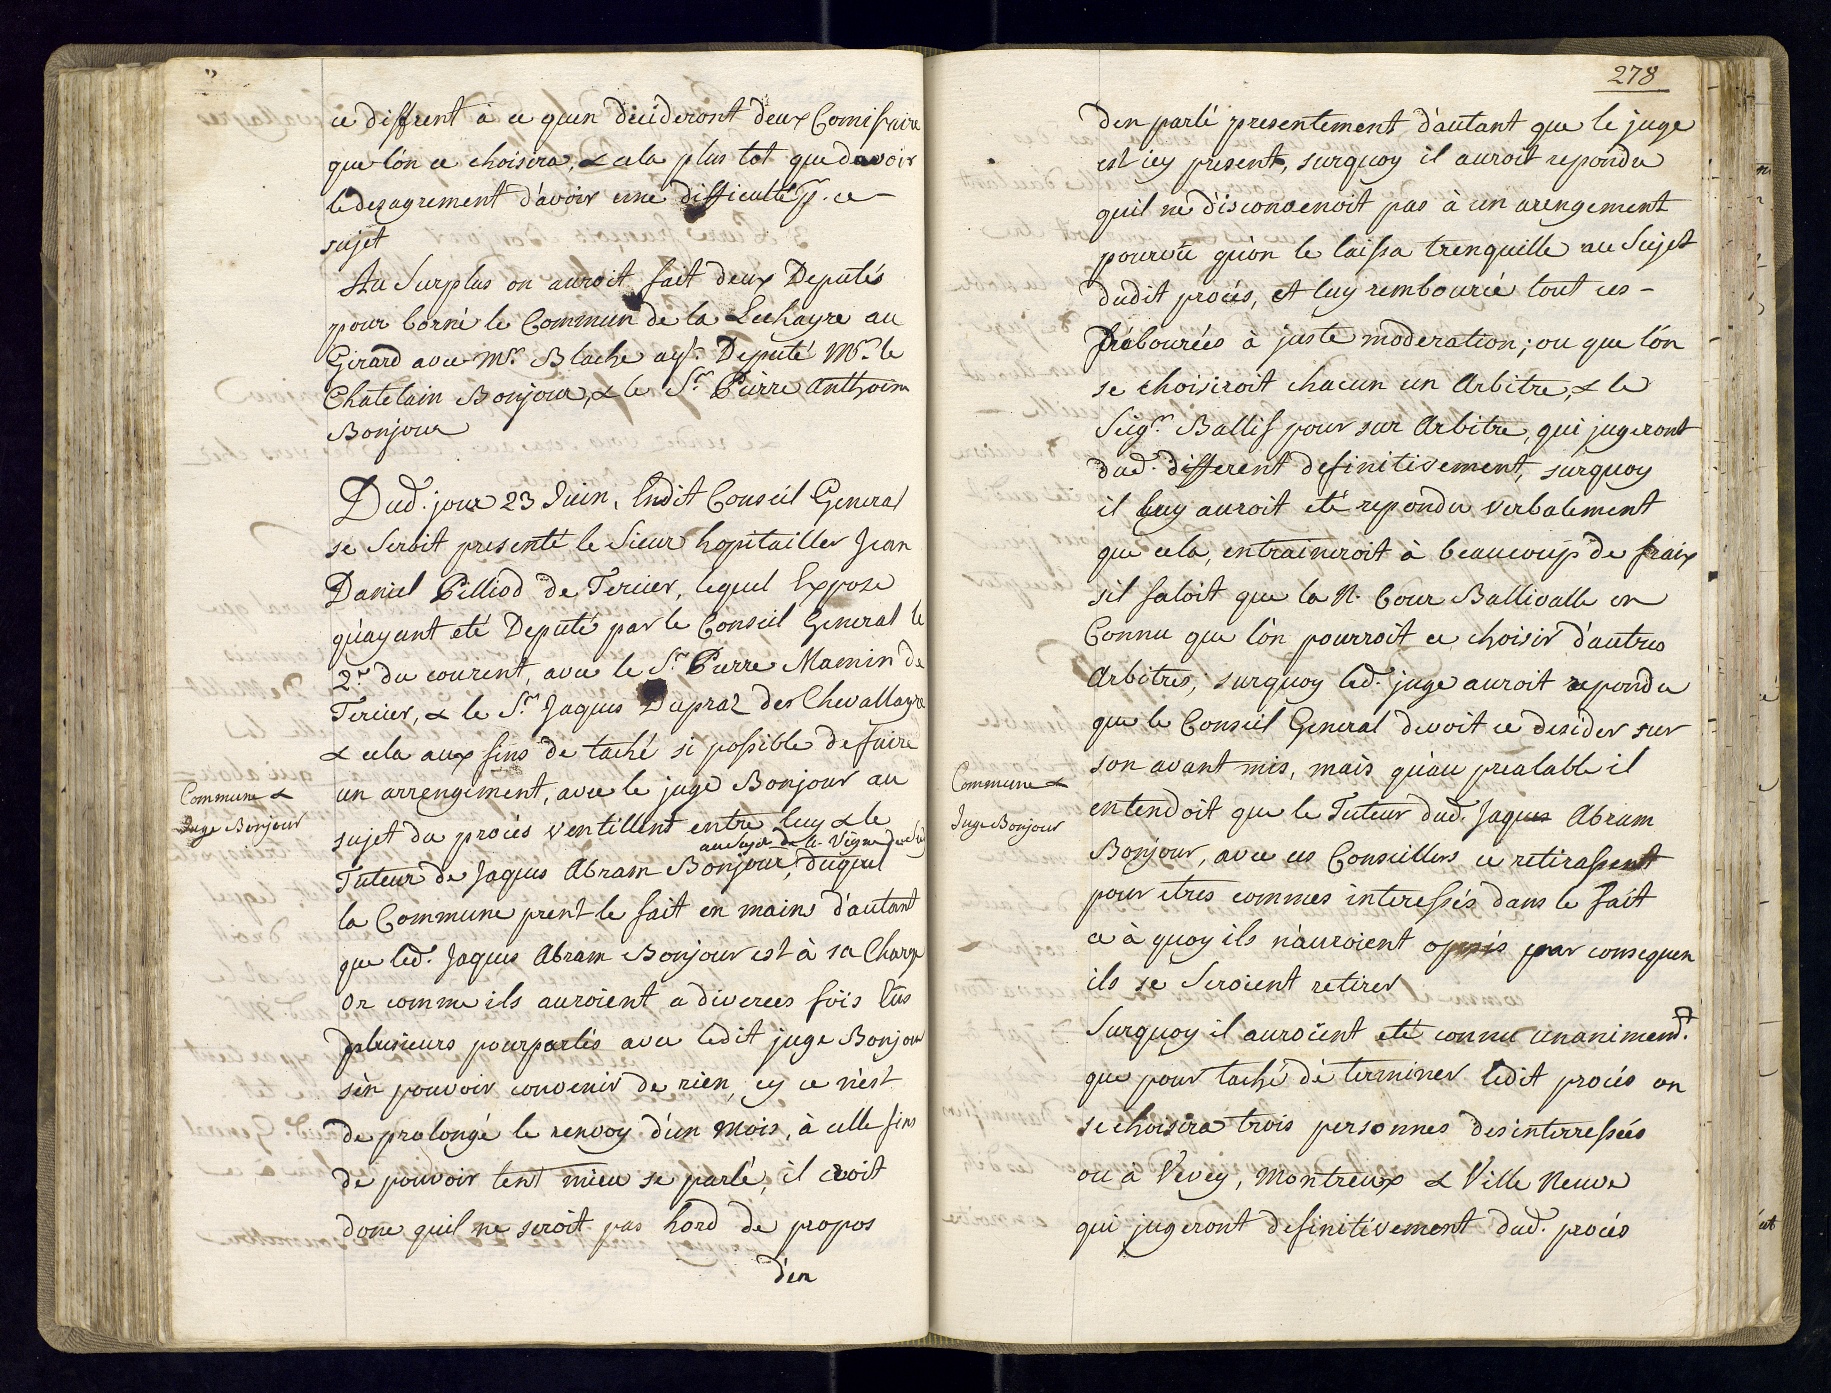 ce different à ce quen décideront deux Comissaire
que lôn ce choisira, & cela plus tot que davoir
le dezagrement d'avoir une difficulté p. ce
sujet
Au Surplus on auroit fait deux Deputés
pour borné le Commun de la Lechayre au
Girard avec Mr. Blache ayſ. Deputé Mr. le
Chatelain Bonjour, & le Sr. Pierre Anthoine
Bonjour
Dud. jour 23 Juin, Endit Conseil General
se Seroit presenté le Sieur hopitailler Jean
Daniel Pilliod de Tercier, lequel Expose
qu'ayant eté Deputé par le Conseil General le
2e. du courent, avec le Sr. Pierre Mamin de
Tercier, & le Sr. Jaques Dupraz des Chevallayre
& cela aux fins de taché si possible de faire
un arrengement, avec le juge Bonjour au
Commune &
Juge Bonjour
sujet du procés ventillent entre luy & le
au sujet de la Vigne
Tuteur de Jaques Abram Bonjour, duquel
la Commune prent le fait en mains d'autant
que led. Jaques Abram Bonjour est à sa Charge
Or comme ils auroient a diverces fois Eus
plusieurs pourparlés avec ledit juge Bonjour
sèn pouvoir convenir de rien, cy ce n'est
de prolongé le renvoy d'ùn Mois, à celle fins
de pouvoir tent mieu se parlé, il croit
donc quil ne seroit pas hord de propos
d'en
278
Den parlé presentement d'autant que le juge
est icy present, surquoy il auroit repondu
quil ne disconvenoit pas à un arengement
pourvû qu'on le laissa trenquille au Sujet
dudit procés, et luy rembourcé tout ces
Déboursés à juste moderation; ou que lôn
se choisiroit chacun un Arbitre, & le
Seigr. Ballif pour sur Arbitre, qui jugeront
dud. different definitivement, surquoy
il luy auroit eté repondu verbalement
que cela, entraineroit à beaucoup de fraix
sil faloit que la N. Cour Ballivalle en
Connu que lôn pourroit ce choisir d'autres
Arbitres; surquoy led. juge auroit repondu
que le Conseil General devoit ce desider sur
son avant mis, mais qu'au prealable il
Commune &
Juge Bonjour
entendoit que le Tuteur dud. Jaques Abram
Bonjour, avec ces Conseillers ce retirassent
pour etres commes interessés dans le fait
ce à quoy ils n'auroient oposés par consequen
ils se Seroient retirer
Surquoy il auroient eté connu unanimemt.
que pour taché de terminer ledit procés on
se choisira trois personnes desinterressées
ou à Vevey, Montreux & Ville Neuve
qui jugeront definitivement dud. procés